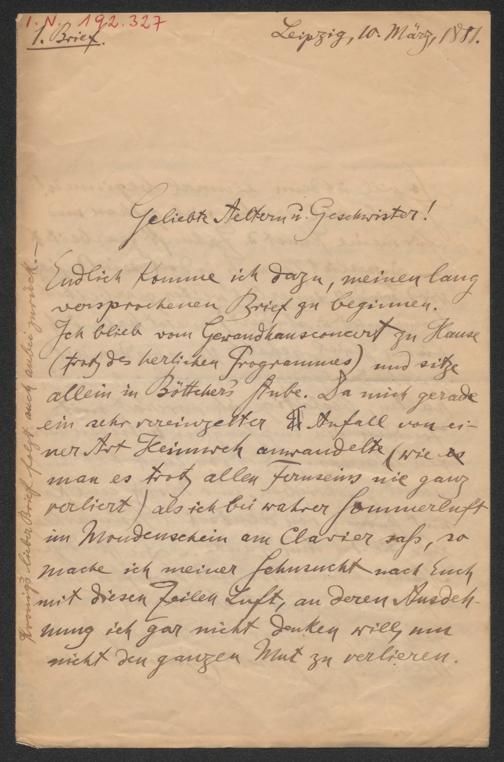 I. N. 192.327
1. Brief.
Leipzig, 10. März, 1881.
Geliebte Aeltern u. Geschwister!
Endlich komme ich dazu, meinen lang
versprochenen Brief zu beginnen.
Ich blieb vom Gewandhausconcert zu Hause
(trotz des herlichen Programmes) und sitze
allein in Böttcher's Stube. Da mich gerade
ein sehr vereinzelter Anfall von ei-
ner Art Heimweh anwandelte (wie es
man es trotz allen Fernseins nie ganz
verliert) als ich bei wahrer Sommerluft
im Mondenschein am Clavier saß, so
mache ich meiner Sehnsucht nach Euch
mit diesen Zeilen Luft, an deren Ausdeh-
nung ich gar nicht denken will, um
nicht den ganzen Mut zu verlieren.
lieber Brief folgt auch anbei zurück.—